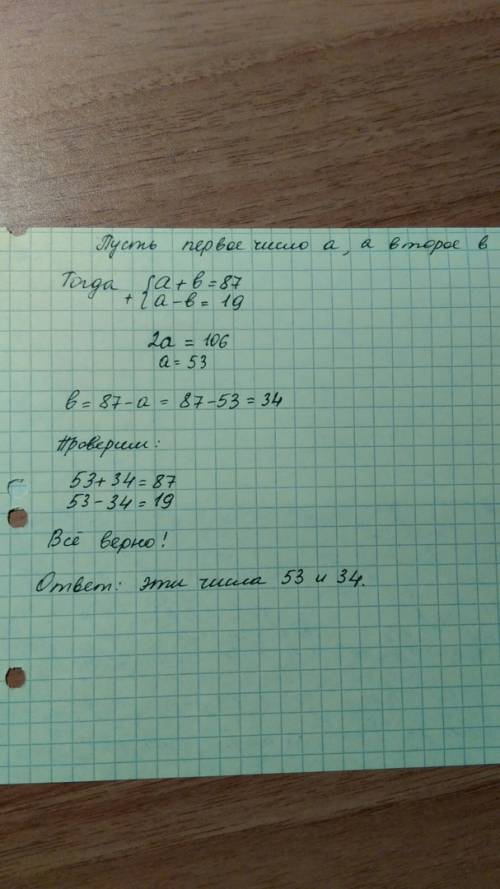 Пусть первое число а, а второе в
Тогда {а + в = 87
+ {а - в = 19
2а = 106
а = 53
в = 87 - а = 87 - 53 = 34
Проверим:
53 + 34 = 87
53 - 34 = 19
Всё верно!
Ответ: эти числа 53 и 34.